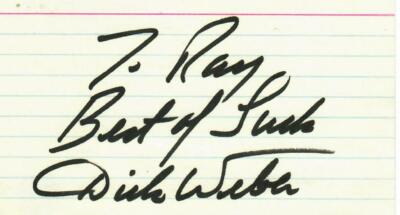 To Ray
Best of Luck
Dick Weber